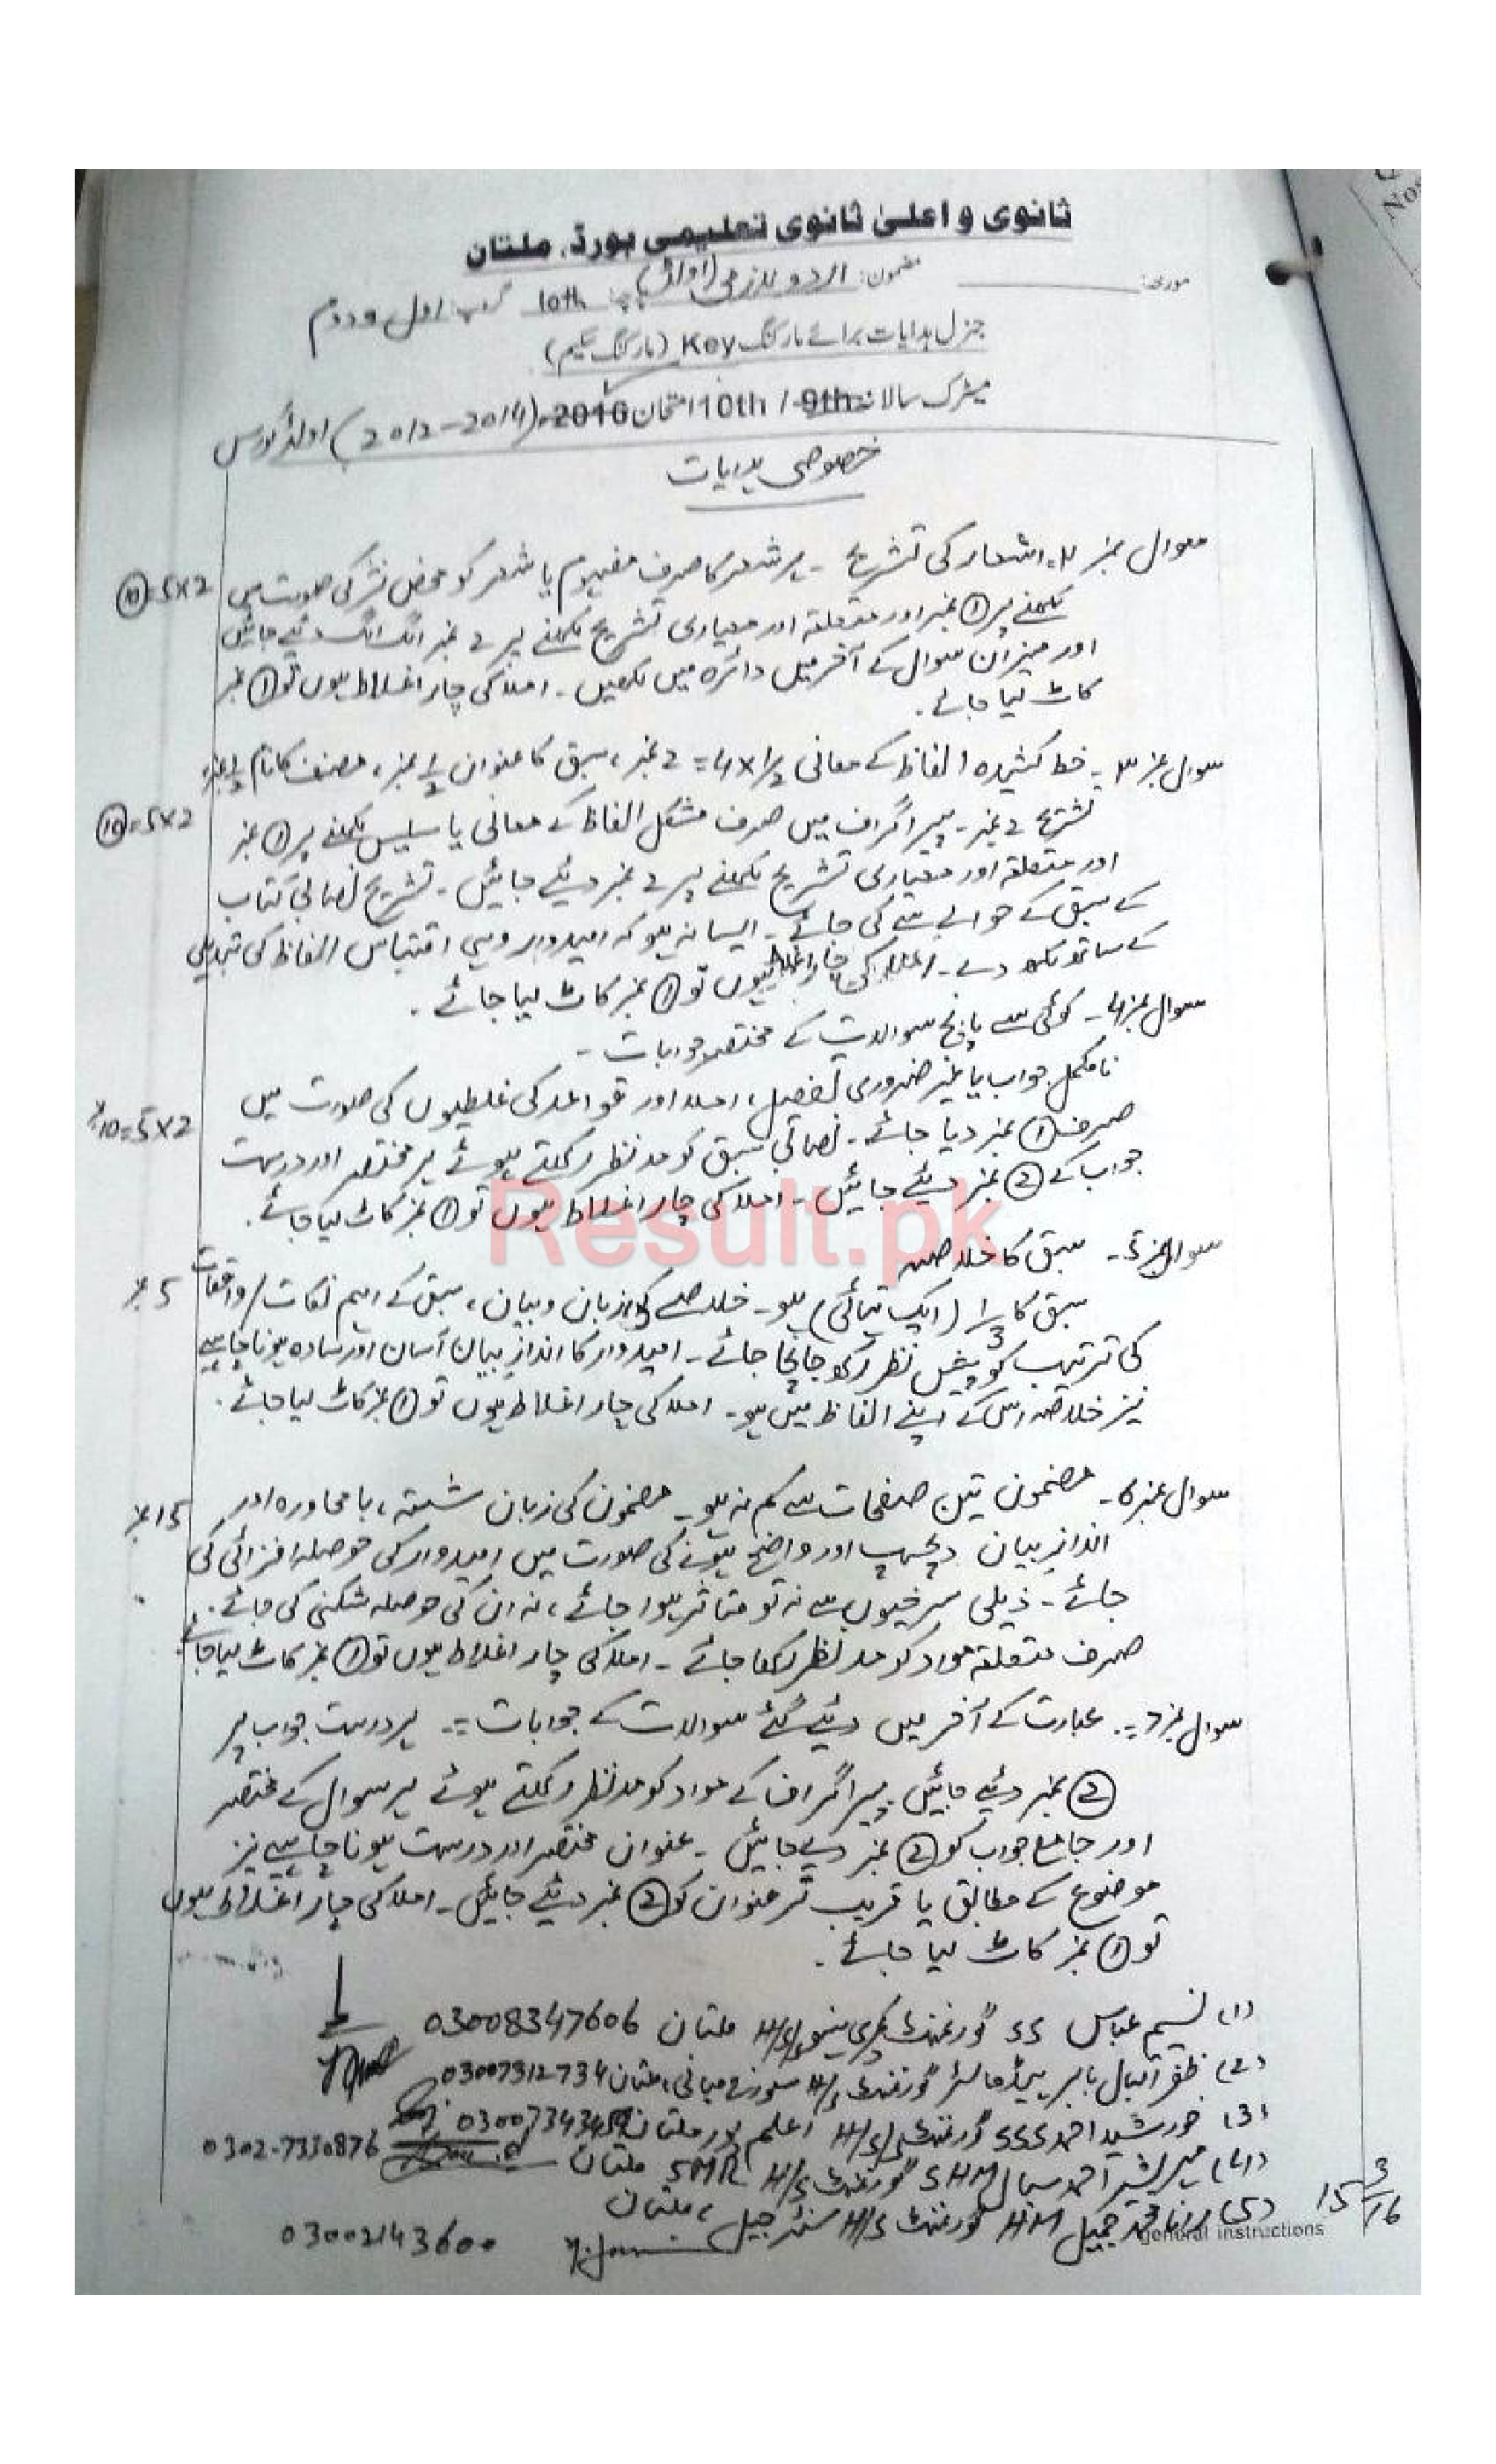 ثانوی و اعلیٰ ثانوی تعلیمی بورڈ، ملتان
مورخہ: مضمون: اردو لازمی (اولڈ) پرچہ: 10th گروپ: اول و دوم
جنرل ہدایات برائے مارکنگ Key (مارکنگ سکیم)
میٹرک سالانہ 9th / 10th امتحان 2016 (2012-2014) اولڈ کورس
خصوصی ہدایات
سوال نمبر 2۔ اشعار کی تشریح ۔ ہر شعر کا صرف مفہوم یا شعر کو محض نثر کی صورت میں 10=5x2
لکھنے پر 1 نمبر اور متعلقہ اور معیاری تشریح لکھنے پر 2 نمبر الگ الگ دئیے جائیں
اور میزان سوال کے آخر میں دائرہ میں لکھیں ۔ املا کی چار اغلاط ہوں تو 1 نمبر
کاٹ لیا جائے ۔
سوال نمبر 3 ۔ خط کشیدہ الفاظ کے معانی 4x1/2 = 2 نمبر ، سبق کا عنوان 1/2 نمبر ، مصنف کا نام 1/2 نمبر
تشریح 2 نمبر ۔ پیراگراف میں صرف مشکل الفاظ کے معانی یا سلیس لکھنے پر 1 نمبر 10=5x2
اور متعلقہ اور معیاری تشریح لکھنے پر 2 نمبر دیئے جائیں ۔ تشریح نصابی کتاب
کے سبق کے حوالے سے کی جائے ۔ ایسا نہ ہو کہ امیدوار وہی اقتباس الفاظ کی تبدیلی
کے ساتھ لکھ دے ۔ املا کی چار اغلاط ہوں تو 1 نمبر کاٹ لیا جائے ۔
سوال نمبر 4 ۔ کوئی سے پانچ سوالات کے مختصر جوابات ۔
نامکمل جواب یا غیر ضروری تفصیل ، املا اور قواعد کی غلطیوں کی صورت میں
صرف 1 نمبر دیا جائے ۔ نصابی سبق کو مد نظر رکھتے ہوئے ہر مختصر اور درست 10=5x2
جواب کے 2 نمبر دیئے جائیں ۔ املا کی چار اغلاط ہوں تو 1 نمبر کاٹ لیا جائے ۔
Result.pk
سوال نمبر 5 ۔ سبق کا خلاصہ
سبق کا 1/3 (ایک تہائی) ہو ۔ خلاصے کو زبان و بیان ، سبق کے اہم نکات / واقعات 5
کی ترتیب کو پیش نظر رکھ کر جانچا جائے ۔ امیدوار کا انداز بیان آسان اور سادہ ہونا چاہیے
نیز خلاصہ اس کے اپنے الفاظ میں ہو ۔ املا کی چار اغلاط ہوں تو 1 نمبر کاٹ لیا جائے ۔
سوال نمبر 6 ۔ مضمون تین صفحات سے کم نہ ہو ۔ مضمون کی زبان شستہ ، با محاورہ اور 15
انداز بیان دلچسپ اور واضح ہونے کی صورت میں امیدوار کی حوصلہ افزائی کی
جائے ۔ ذیلی سرخیوں سے نہ تو متاثر ہوا جائے ، نہ ان کی حوصلہ شکنی کی جائے ۔
صرف متعلقہ مواد کو مد نظر رکھا جائے ۔ املا کی چار اغلاط ہوں تو 1 نمبر کاٹ لیا جائے
سوال نمبر 7 ۔ عبارت کے آخر میں دیئے گئے سوالات کے جوابات :۔ ہر درست جواب پر
2 نمبر دئیے جائیں ۔ پیراگراف کے مواد کو مد نظر رکھتے ہوئے ہر سوال کے مختصر
اور جامع جواب کو 2 نمبر دیے جائیں ۔ عنوان مختصر اور درست ہونا چاہیے نیز
موضوع کے مطابق یا قریب تر عنوان کو 2 نمبر دیئے جائیں ۔ املا کی چار اغلاط ہوں
تو 1 نمبر کاٹ لیا جائے ۔
(1) نسیم عباس SS گورنمنٹ H/S/S ملتان 03008347606
(2) ظفر اقبال بابر ہیڈماسٹر گورنمنٹ H/S میانی ، ملتان 03007312734
(3) خورشید احمد SSS گورنمنٹ H/S/S ملتان
(4) میر بشیر احمد سیال SHM گورنمنٹ H/S SMR ملتان 0302-7330876
(5) رانا محمد جمیل HM گورنمنٹ H/S سنٹر جیل ، ملتان 03002143600
general instructions
15 3/16